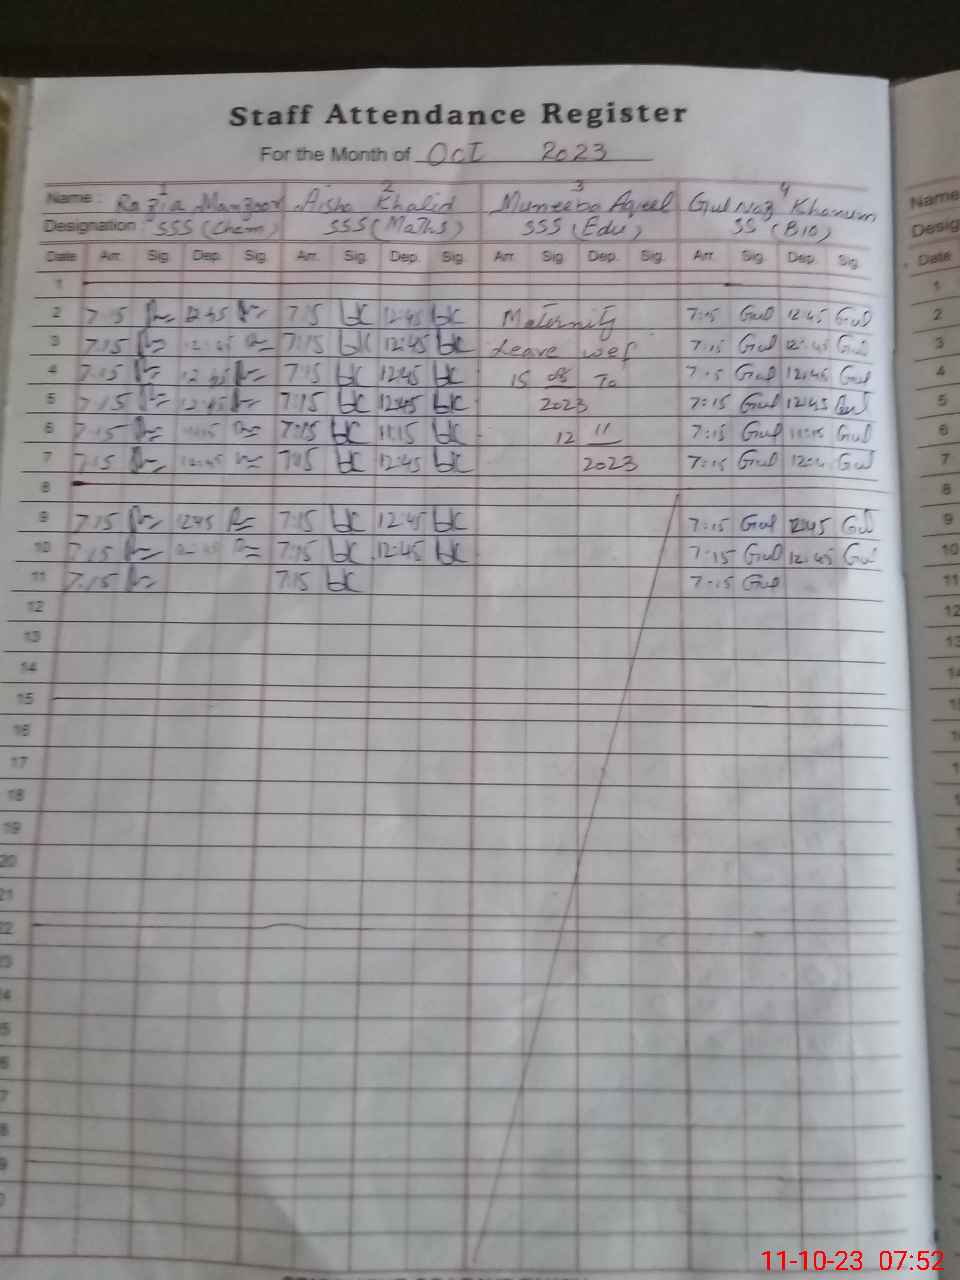 Staff Attendance Register
For the Month of Oct 2023
1 2 3 4
Name : Razia Manzoor Aisha Khalid Muneeba Aqeel Gul Naz Khanum Name
Designation : SSS (Chem) SSS (Maths) SSS (Edu) SS (BIO) Desig
Date Arr. Sig. Dep. Sig. Arr. Sig. Dep. Sig. Arr. Sig. Dep. Sig. Arr. Sig. Dep. Sig. Date
1 1
2 7:15 12:45 7:15 12:45 Maternity 7:15 Gul 12:45 Gul 2
3 7:15 12:45 7:15 12:45 Leave wef 7:15 Gul 12:45 Gul 3
4 7:15 12:45 7:15 12:45 15 08 To 7:15 Gul 12:45 Gul 4
5 7:15 12:45 7:15 12:45 2023 7:15 Gul 12:45 Gul 5
6 7:15 11:15 7:15 11:15 12 11 7:15 Gul 11:15 Gul 6
7 7:15 12:45 7:15 12:45 2023 7:15 Gul 12:4 Gul 7
8 8
9 7:15 12:45 7:15 12:45 7:15 Gul 12:45 Gul 9
10 7:15 12:45 7:15 12:45 7:15 Gul 12:45 Gul 10
11 7:15 7:15 7:15 Gul 11
12 12
13 13
14 14
15
16
17
18
19
20
21
22
11-10-23 07:52